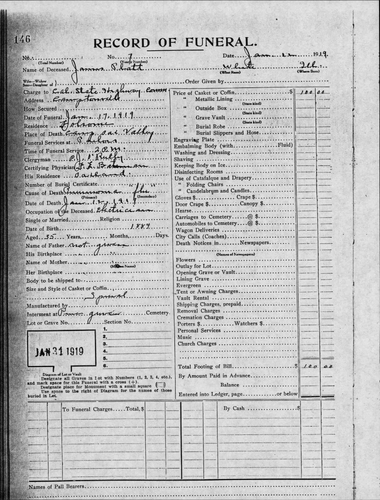 146
RECORD OF FUNERAL.
No. 7
Jan 1919
(Total Number)
Name of Deceased James
White
(What Race)
(Where Born)
Order Given by
Charge to Cal. State Highway Comm
Address
How Secured
Date of Funeral Jan 17 1919
Residence Folsom
Place of Death
Funeral Services at Parlors
Time of Funeral Service 2 P.M.
Clergyman
Certifying Physician
His Residence
Number of Burial Certificate
Cause of Death Pneumonia flu
Date of Death Jan 12 1919
Occupation of the Deceased Electrician
Single or Married Religion
Date of Birth 1889
Aged 35 Years, Months, Days.
Name of Father not given
His Birthplace
Name of Mother
Her Birthplace
Body to be shipped to
Size and Style of Casket or Coffin
Manufactured by
Interment at Cemetery
Lot or Grave No. Section No.
JAN 31 1919
1.
2.
3.
4.
5.
6.
Diagram of Lot or Vault
Designate all Graves in Lot with Numbers (1, 2, 3, 4, etc.),
and mark space for this Funeral with a cross (+).
Designate place for Monument with a small square
Use space to the right of Diagram for the Names of those
buried in Lot.
Price of Casket or Coffin $ 120 00
" Metallic Lining
(State kind)
" Outside Box
(State kind)
" Grave Vault
(State kind)
" Burial Robe
(State kind)
" Burial Slippers and Hose
Engraving Plate
Embalming Body (with Fluid)
Washing and Dressing
Shaving
Keeping Body on Ice
Disinfecting Rooms
Use of Catafalque and Drapery
" Folding Chairs
" Candelabrum and Candles
Gloves $ Crape $
Door Crape $ Canopy $
Hearse
Carriages to Cemetery @ $
Automobiles to Cemetery @ $
Wagon Deliveries
City Calls (Coaches)
Death Notices in Newspapers
(Names of Newspapers)
Flowers
Outlay for Lot
Opening Grave or Vault
Lining Grave
Evergreen
Tent or Awning Charges
Vault Rental
Shipping Charges, prepaid
Removal Charges
Cremation Charges
Porters $ Watchers $
Personal Services
Music
Church Charges
Total Footing of Bill $ 120 00
By Amount Paid in Advance
Balance
Entered into Ledger, page or below.
To Funeral Charges Total, $
By Cash $
Names of Pall Bearers